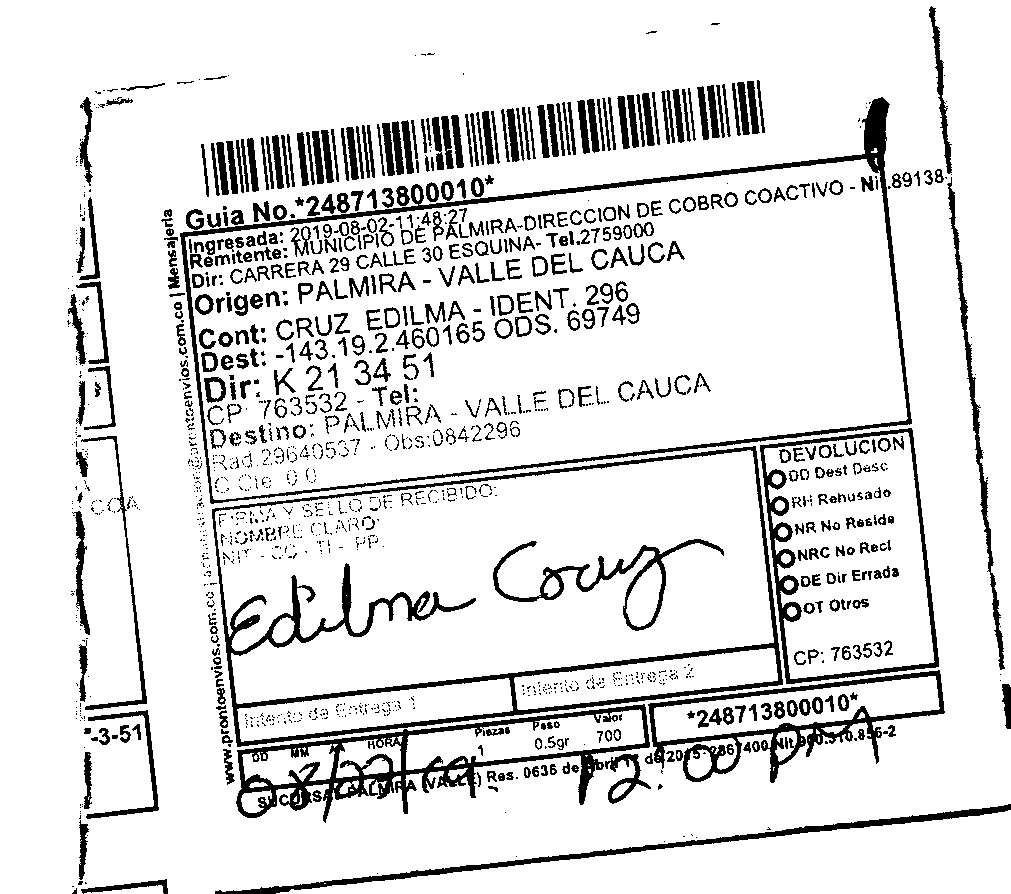 *248713800010*
Guia No.*248713800010*
Ingresada: 2019-08-02-11:48:27
Remitente: MUNICIPIO DE PALMIRA-DIRECCION DE COBRO COACTIVO - Nit.89138
Dir: CARRERA 29 CALLE 30 ESQUINA- Tel.2759000
Origen: PALMIRA - VALLE DEL CAUCA
Cont: CRUZ EDILMA - IDENT. 296
Dest: -143.19.2.460165 ODS. 69749
Dir: K 21 34 51
CP: 763532 - Tel:
Destino: PALMIRA - VALLE DEL CAUCA
Rad.29640537 - Obs:0842296
C Cte. 0 0
FIRMA Y SELLO DE RECIBIDO:
NOMBRE CLARO:
NIT - CC - TI - PP.
Edilma Cruz
DEVOLUCION
DD Dest Desc
RH Rehusado
NR No Reside
NRC No Recl
DE Dir Errada
OT Otros
CP: 763532
Intento de Entrega 1
Intento de Entrega 2
DD MM HORA
Piezas Peso Valor
1 0.5gr 700
*248713800010*
12:00 PM
SUCURSAL PALMIRA (VALLE) Res. 0636 de
www.prontoenvios.com.co
Mensajeria
COA
-3-51